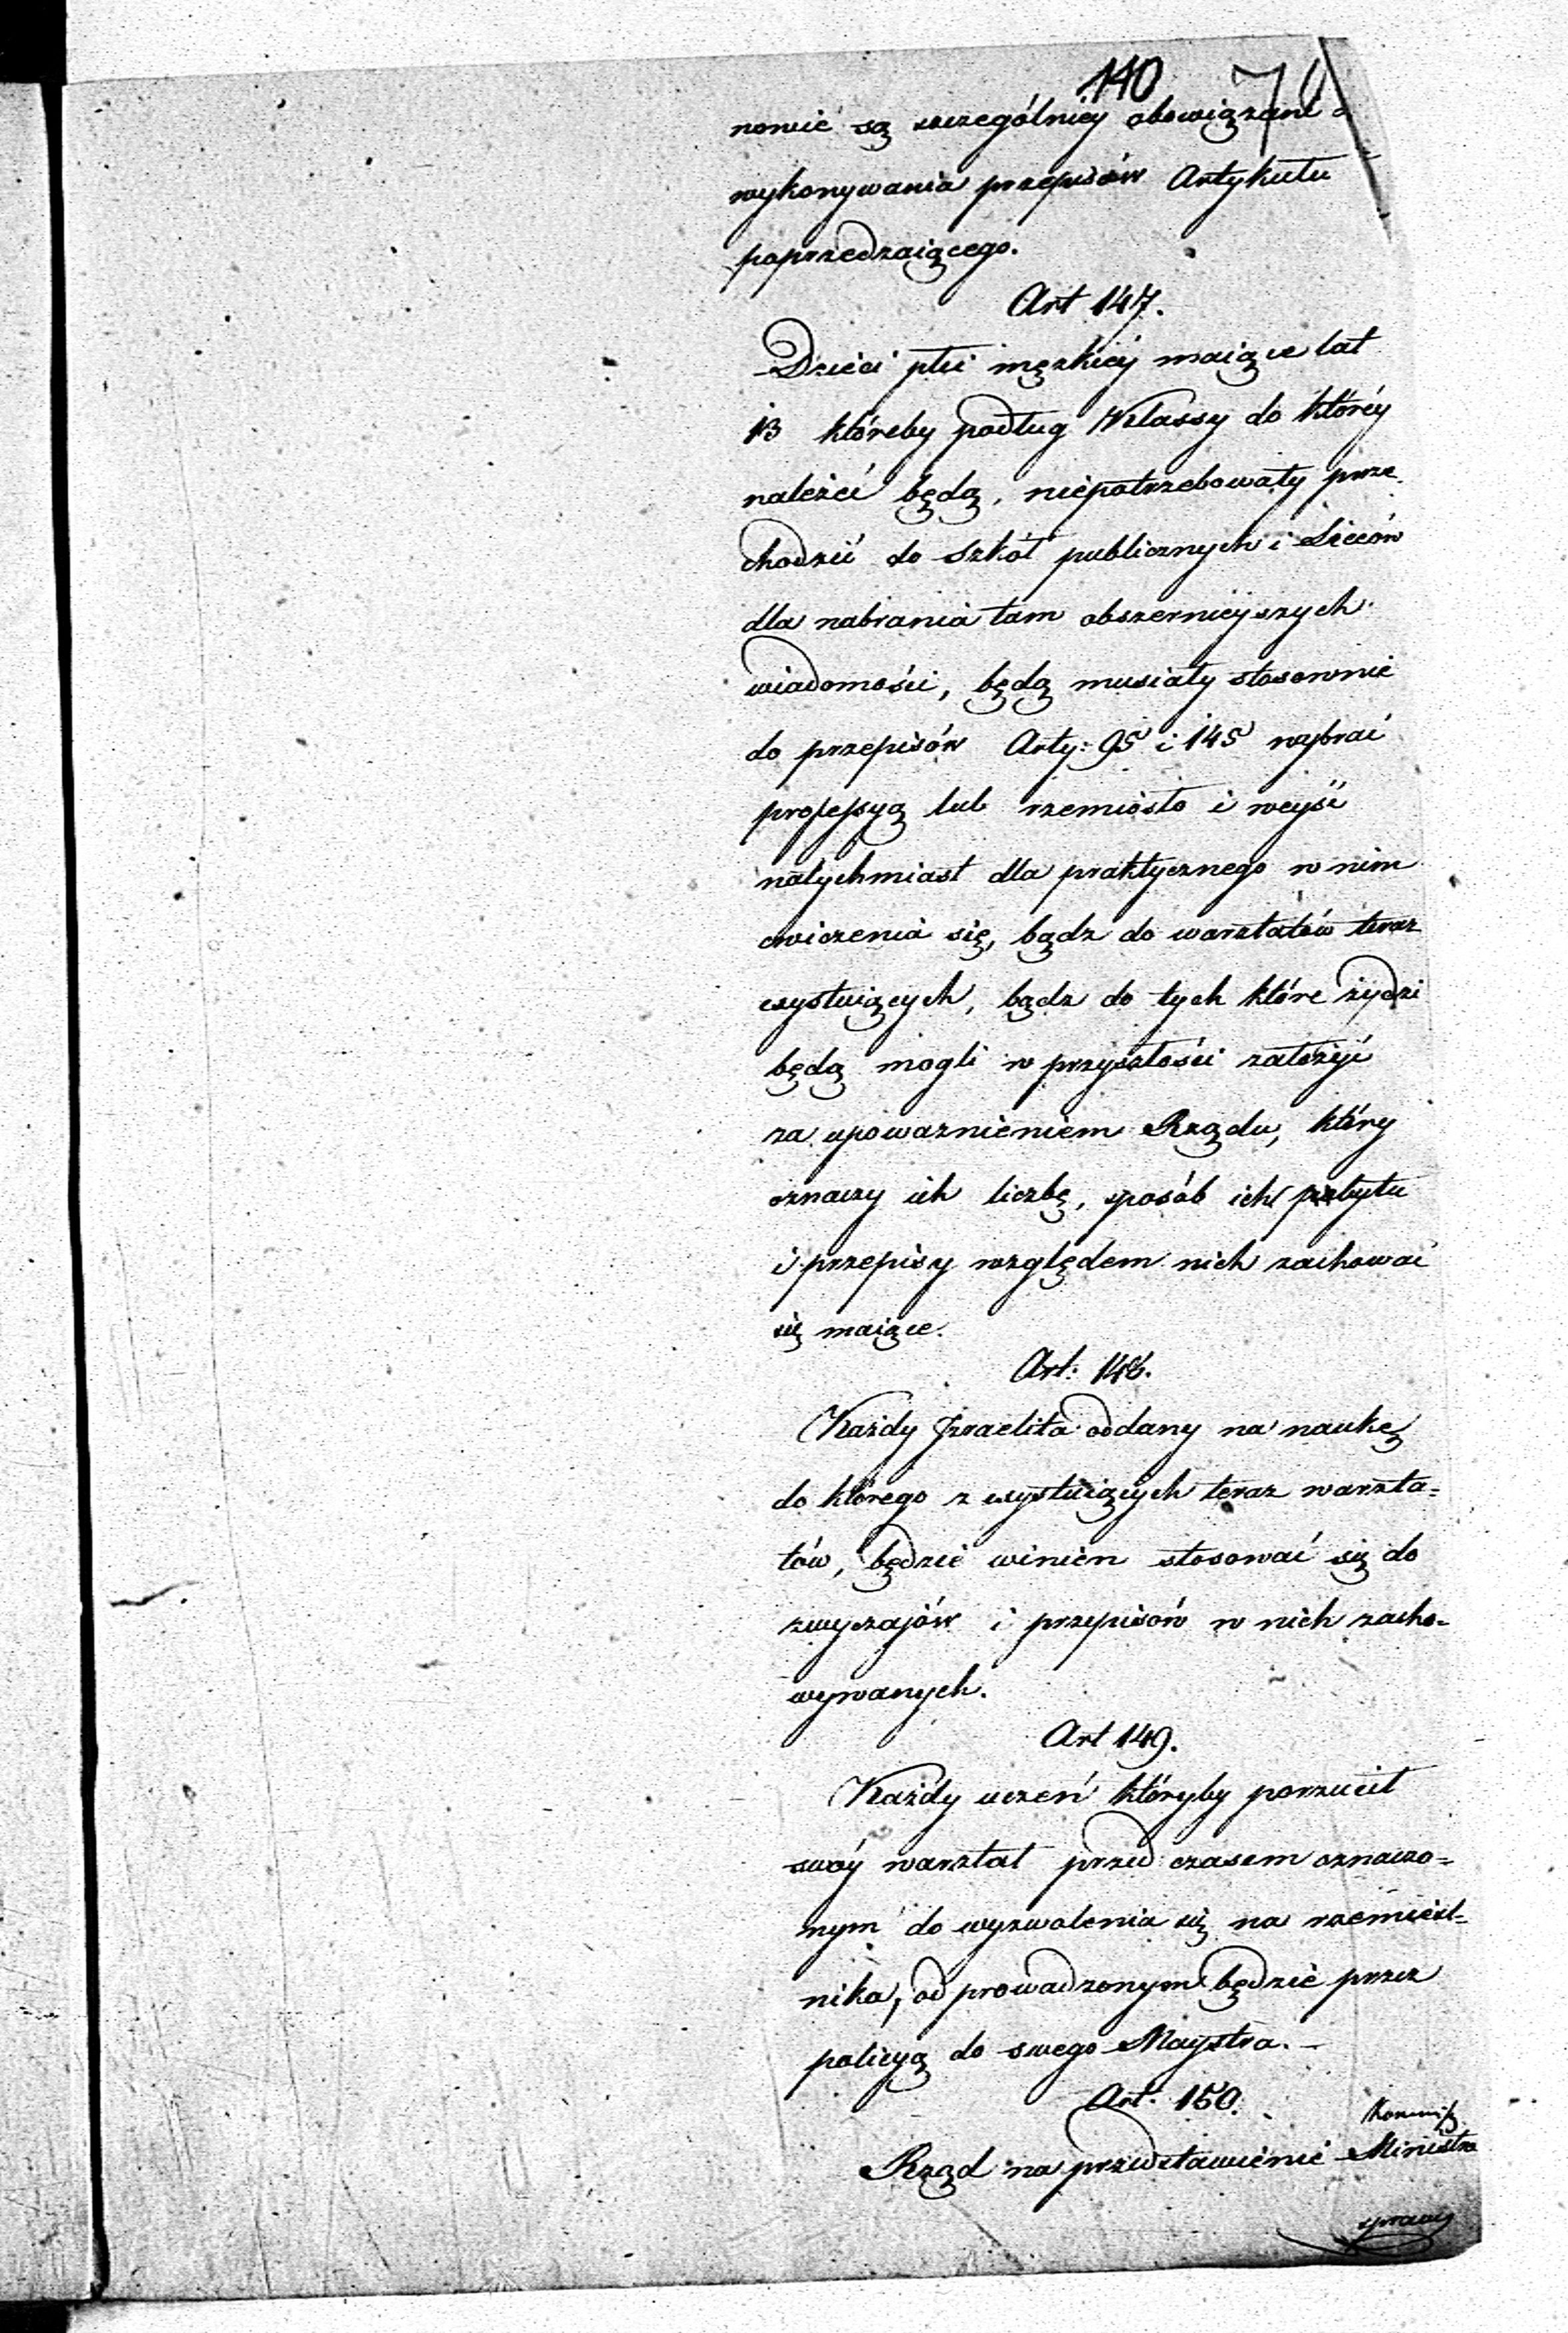 140 70
nowić są szczególniey obowiązani
wykonywania przepisów Artykułu
poprzedzaiącego.
Art 147.
Dzieci płci męzkiey maiące lat
13 któreby podług Klassy do któréy
należeć będą, niepotrzebowały prze
chodzić do szkół publicznych i Liceów
dla nabrania tam obszernieyszych
wiadomości, będą musiały stosownie
do przepisów Arty: 95 i 145 wybrać
professyą lub rzemiosło i weyść
natychmiast dla praktycznego w nim
cwiczenia się, bądz do warsztatów teraz
exystuiących, bądz do tych które żydzi
będą mogli w przyszłości założyć
za upoważnieniem Rządu, który
oznaczy ich liczbę, sposób ich pobytu
i przepisy względem nich zachować
się maiące.
Art: 148.
Każdy Izraelita oddany na naukę
do którego z exystuiących teraz warszta=
tów, będzie winien stosować się do
zwyczajów i przepisów w nich zacho=
wywanych.
Art 149.
Każdy uczeń któryby porzucił
swóy warsztat przed czasem oznaczo=
nym do wyzwolenia się na rzemieśl=
nika, odprowadzonym będzie przez
policyą do swego Maystra. –
Art. 150.
Kommiss
Rząd na przedstawienie Ministra
spraw